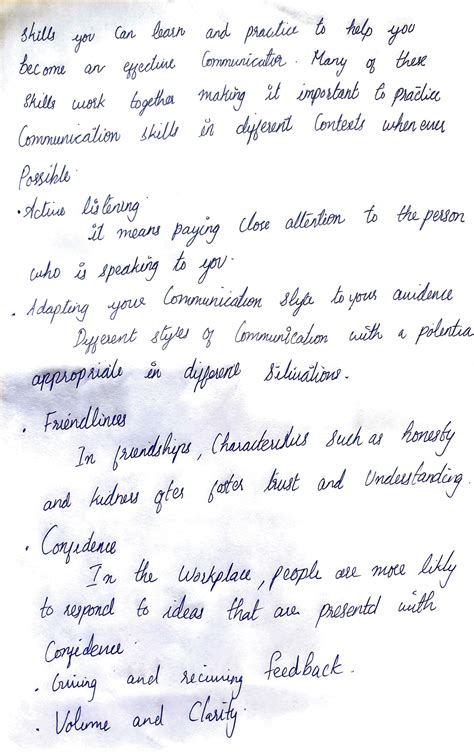 Skills you can learn and practice to help you
become an effective Communicator. Many of these
Skills work together making it important to practice
Communication skills in different Contexts when ever
Possible.
• Active listening
it means paying close attention to the person
who is speaking to you.
• Adapting your Communication style to your auidence
Different styles of Communication with a potentia
appropriate in different situations.
• Friendliness
In friendships, Characteristics such as honesty
and kidness ofter foster trust and Understanding.
• Confidence
In the workplace, people are more likly
to respond to ideas that are presentd with
Confidence.
• Giving and reciving feedback.
• Volume and Clarity.